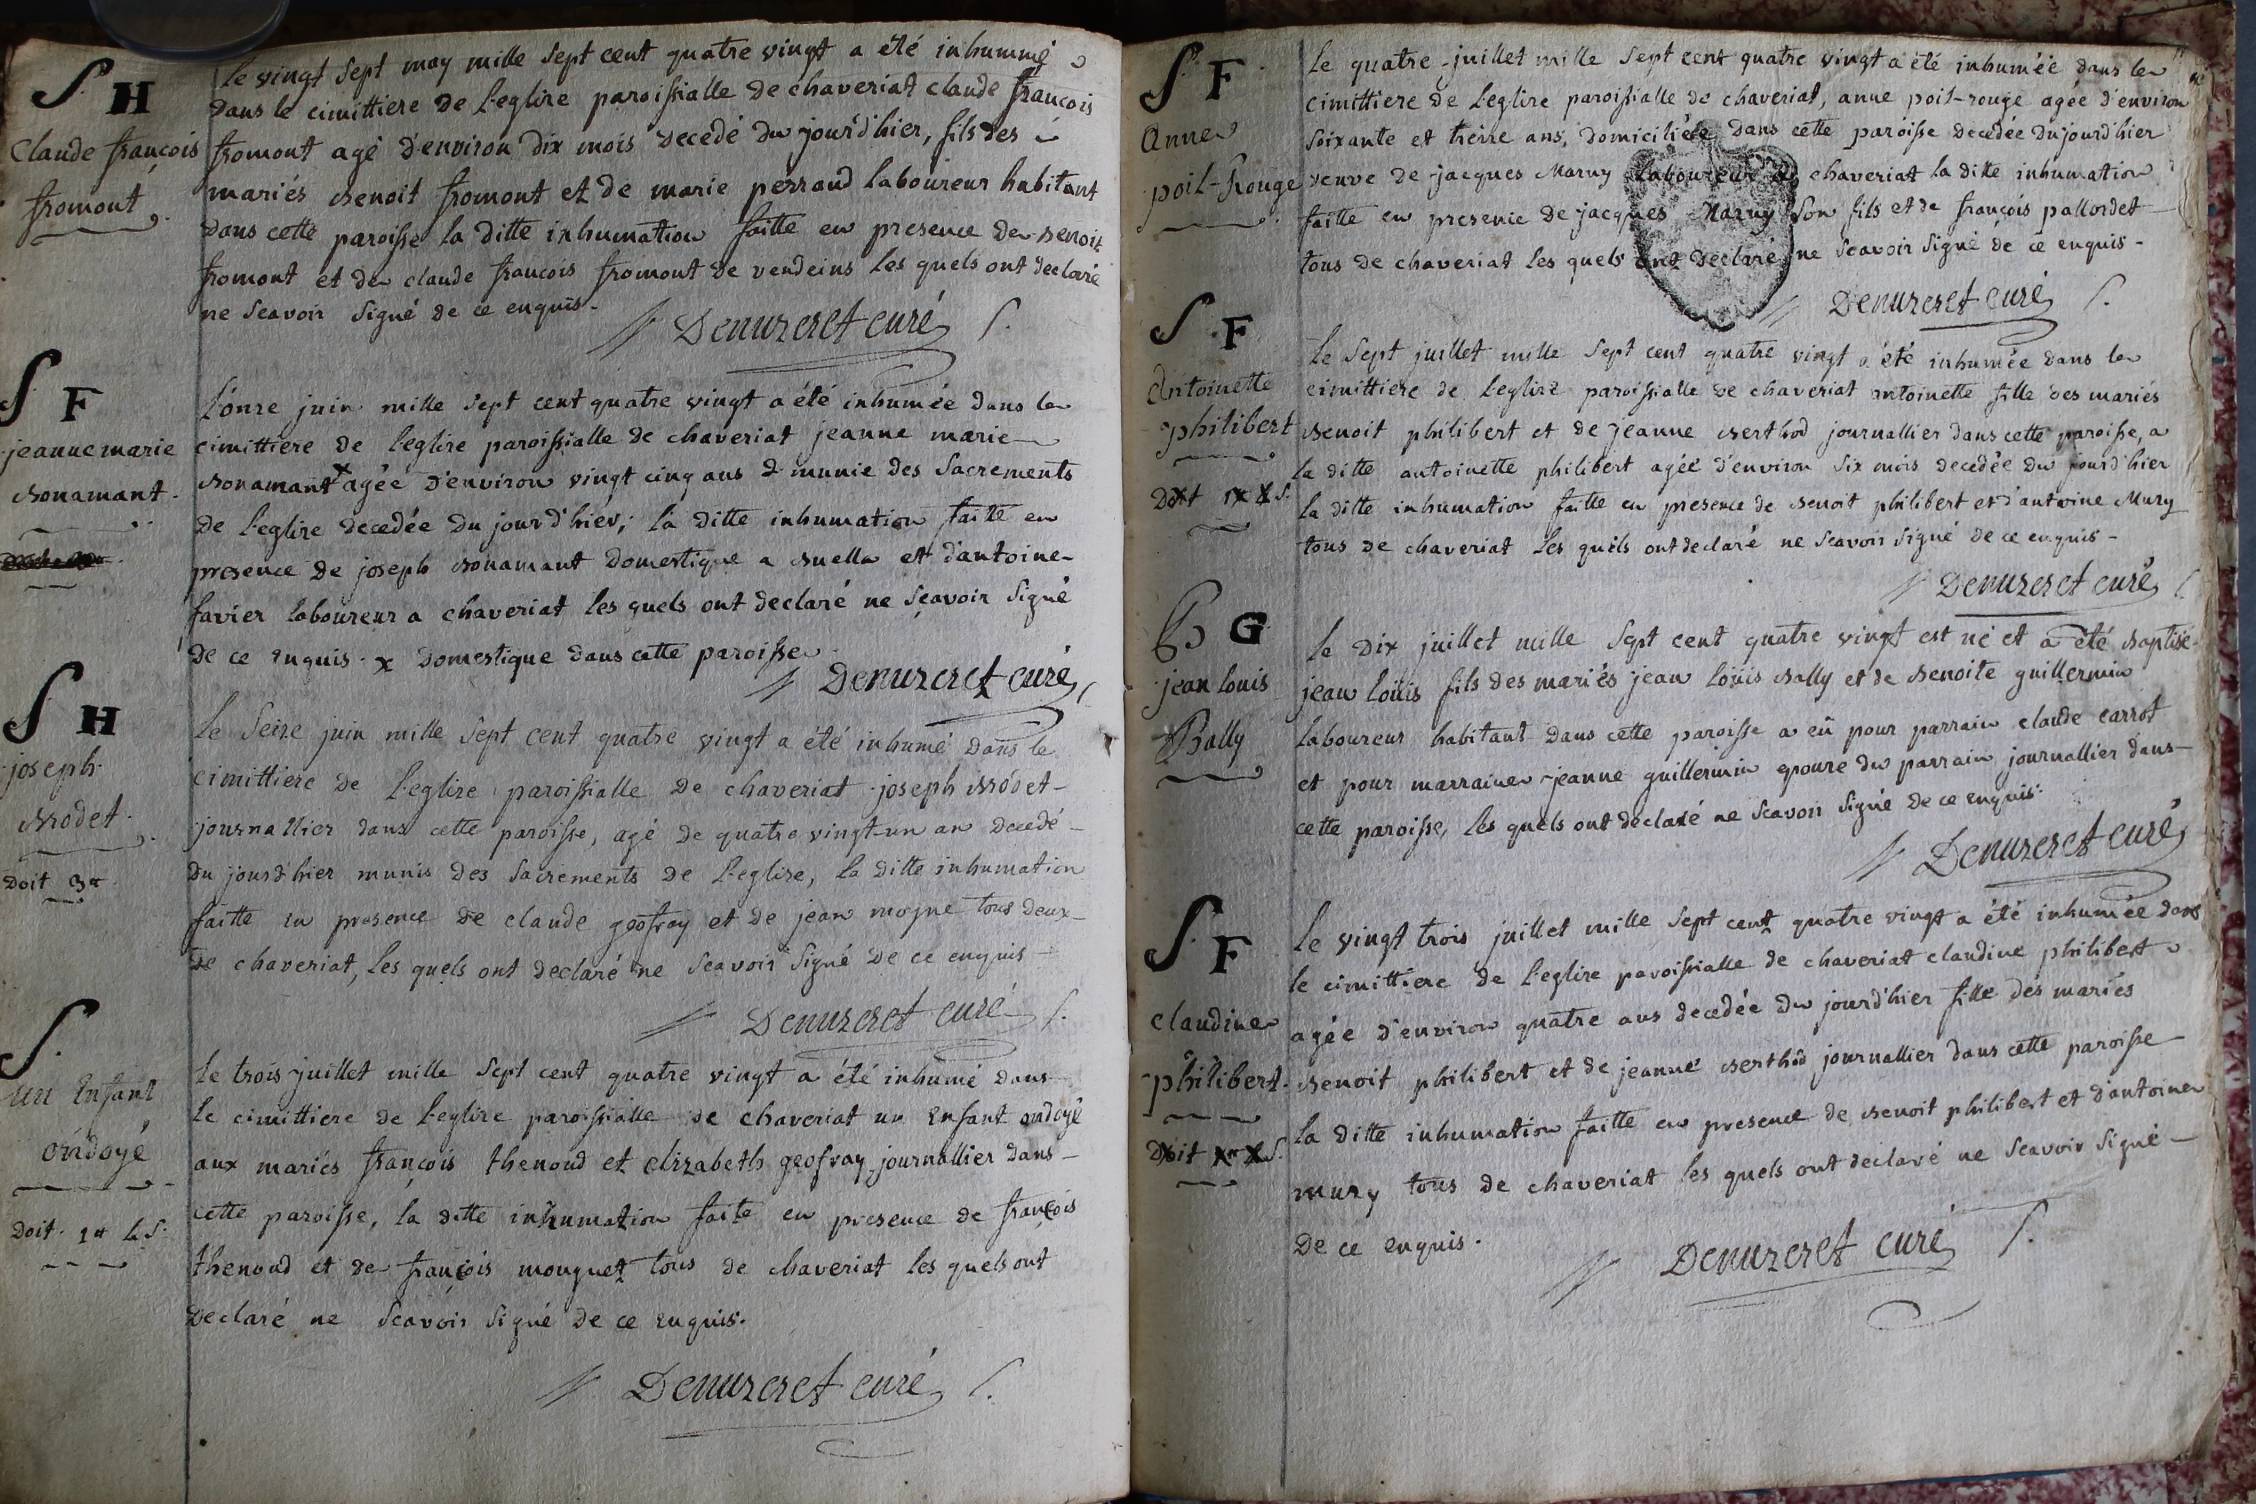 S. H
Claude françois
fromont
Le vingt Sept may mille Sept cent quatre vingt a été inhummé
dans le cimittiere de l'eglize paroissialle de chaveriat claude françois
fromont agé d'environ dix mois decedé du jourd'hier, fils des
mariés Benoit fromont et de marie perraud laboureur habitant
dans cette paroisse la ditte inhumation faitte en presence de Benoit
fromont et de claude françois fromont de vendeins les quels ont declaré
ne scavoir signé de ce enquis.
Denuzeret curé
S F
jeanne marie
Bonamant.
L'onze juin mille sept cent quatre vingt a été inhumée dans le
cimittiere de l'eglize paroissialle de chaveriat jeanne marie
Bonamant x agée d'environ vingt cinq ans & munie des Sacrements
de l'eglize decedée du jourd'hier, la ditte inhumation faite en
presence de joseph Bonamant domestique a Buella et d'antoine
favier laboureur a chaveriat les quels ont declaré ne sçavoir signé
de ce enquis. x domestique dans cette paroisse
Denuzeret curé
S H
joseph
Brodet.
doit 3#
Le Seize juin mille Sept cent quatre vingt a été inhumé dans le
cimittiere de l'eglize paroissialle de chaveriat joseph Brodet
journallier dans cette paroisse, agé de quatre vingt-un an decedé
du jourd'hier munis des sacrements de l'eglize, la ditte inhumation
faitte en presence de claude geofray et de jean moyne tous deux
de chaveriat, les quels ont declaré ne scavoir signé de ce enquis
Denuzeret curé
S.
un Enfant
ondoyé
doit. 1# 4 S.
Le trois juillet mille Sept cent quatre vingt a été inhumé dans
le cimittiere de l'eglize paroissialle de chaveriat un Enfant ondoyé
aux mariés françois thenoud et elizabeth geofray journallier dans
cette paroisse, la ditte inhumation faite en presence de françois
thenoud et de françois monguet tous de chaveriat les quels ont
declaré ne scavoir signé de ce enquis.
Denuzeret curé
S. F
Anne
poil-Rouge
Le quatre juillet mille Sept cent quatre vingt a été inhumée dans le
cimittiere de l'eglize paroissialle de chaveriat, anne poil-rouge agée d'environ
soixante et treize ans, domiciliée dans cette paroisse decedée dujourd'hier
veuve de jacques Maruy laboureur de chaveriat la ditte inhumation
faitte en presence de jacques Maruy son fils et de françois pallordet
tous de chaveriat les quels ont declaré ne scavoir signé de ce enquis
Denuzeret curé
S. F
Antoinette
philibert
Le Sept juillet mille Sept cent quatre vingt a été inhumée dans le
cimittiere de l'eglize paroissialle de chaveriat antoinette fille des mariés
Benoit philibert et de jeanne Berthod journallier dans cette paroisse, a
la ditte antoinette philibert agée d'environ six mois decedée du jourd'hier
la ditte inhumation faitte en presence de Benoit philibert et d'antoine Mury
tous de chaveriat les quels ont declaré ne scavoir signé de ce enquis
Denuzeret curé
B G
jean louis
Bally
Le Dix juillet mille Sept cent quatre vingt est né et a été Baptisé
jean loüis fils des mariés jean loüis Bally et de Benoite guillermin
laboureur habitant dans cette paroisse a eû pour parrain claude carrot
et pour marraine jeanne guillermin epouze du parrain journallier dans
cette paroisse, les quels ont declaré ne scavoir signé de ce enquis.
Denuzeret curé
S. F
claudine
philibert.
Le vingt trois juillet mille sept cent quatre vingt a été inhumée dans
le cimittiere de l'eglize paroissialle de chaveriat claudine philibert
agée d'environ quatre ans decedée du jourd'hier fille des mariés
Benoit philibert et de jeanne Berthod journallier dans cette paroisse
la ditte inhumation faitte en presence de Benoit philibert et d'antoine
mury tous de chaveriat les quels ont declaré ne scavoir signé
de ce enquis.
Denuzeret curé